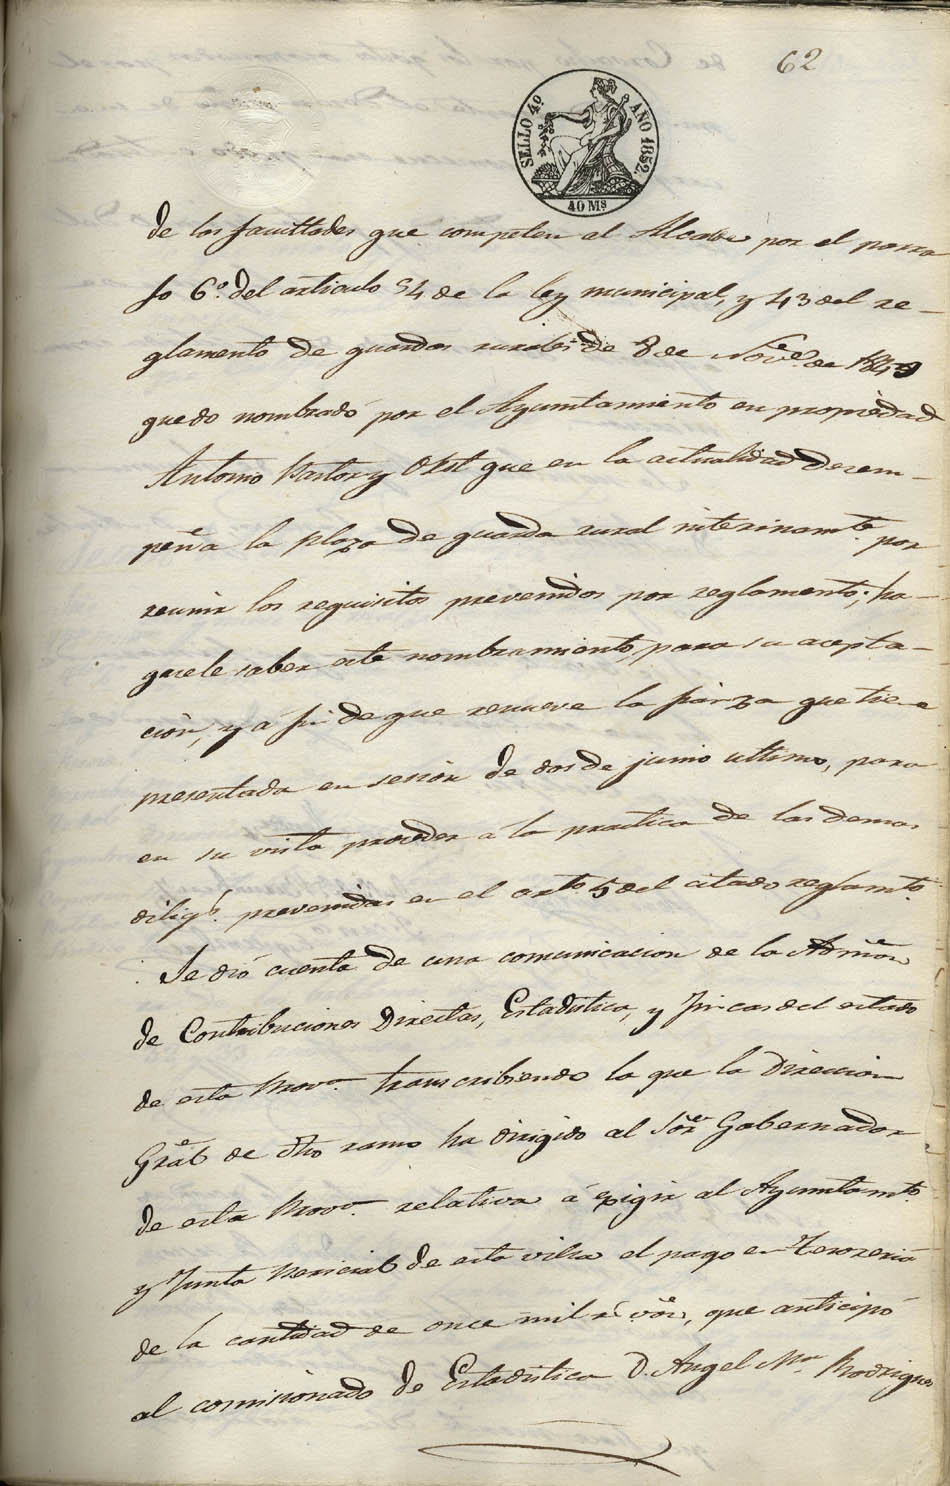 62
SELLO 4º AÑO 1852.
40 Ms
de las facultades que competen al Alcalde por el parra
fo 6º. del articulo 54 de la ley municipal, y 43 del re-
glamento de guardas rurales de 8 de Nove. de 1849
quedo nombrado por el Ayuntamiento en propiedad
Antonio Pastor y que en la actualidad desem-
peña la plaza de guarda rural interinamte. por
reunir los requisitos prevenidos por reglamento; ha-
gasele saber este nombramiento, para su acepta-
ción, y a fin de que renueve la fianza que tiene
presentada en sesión de dos de junio ultimo, para
en su vista proceder a la practica de las demas
diligs. prevenidas en el arto. 5 del citado reglamto.
Se dió cuenta de una comunicacion de la Admon
de Contribuciones Directas, Estadistica, y Fincas del estado
de esta Prova. transcribiendo lo que la Direccion
Gral de dho ramo ha dirigido al Sor. Gobernador
de esta Prova. relativa á exigir al Ayuntamto.
y Junta Pericial de esta villa el pago en Tesoreria
de la cantidad de once mil rs. von, que anticipó
al comisionado de Estadistica D. Angel Ma. Rodriguez